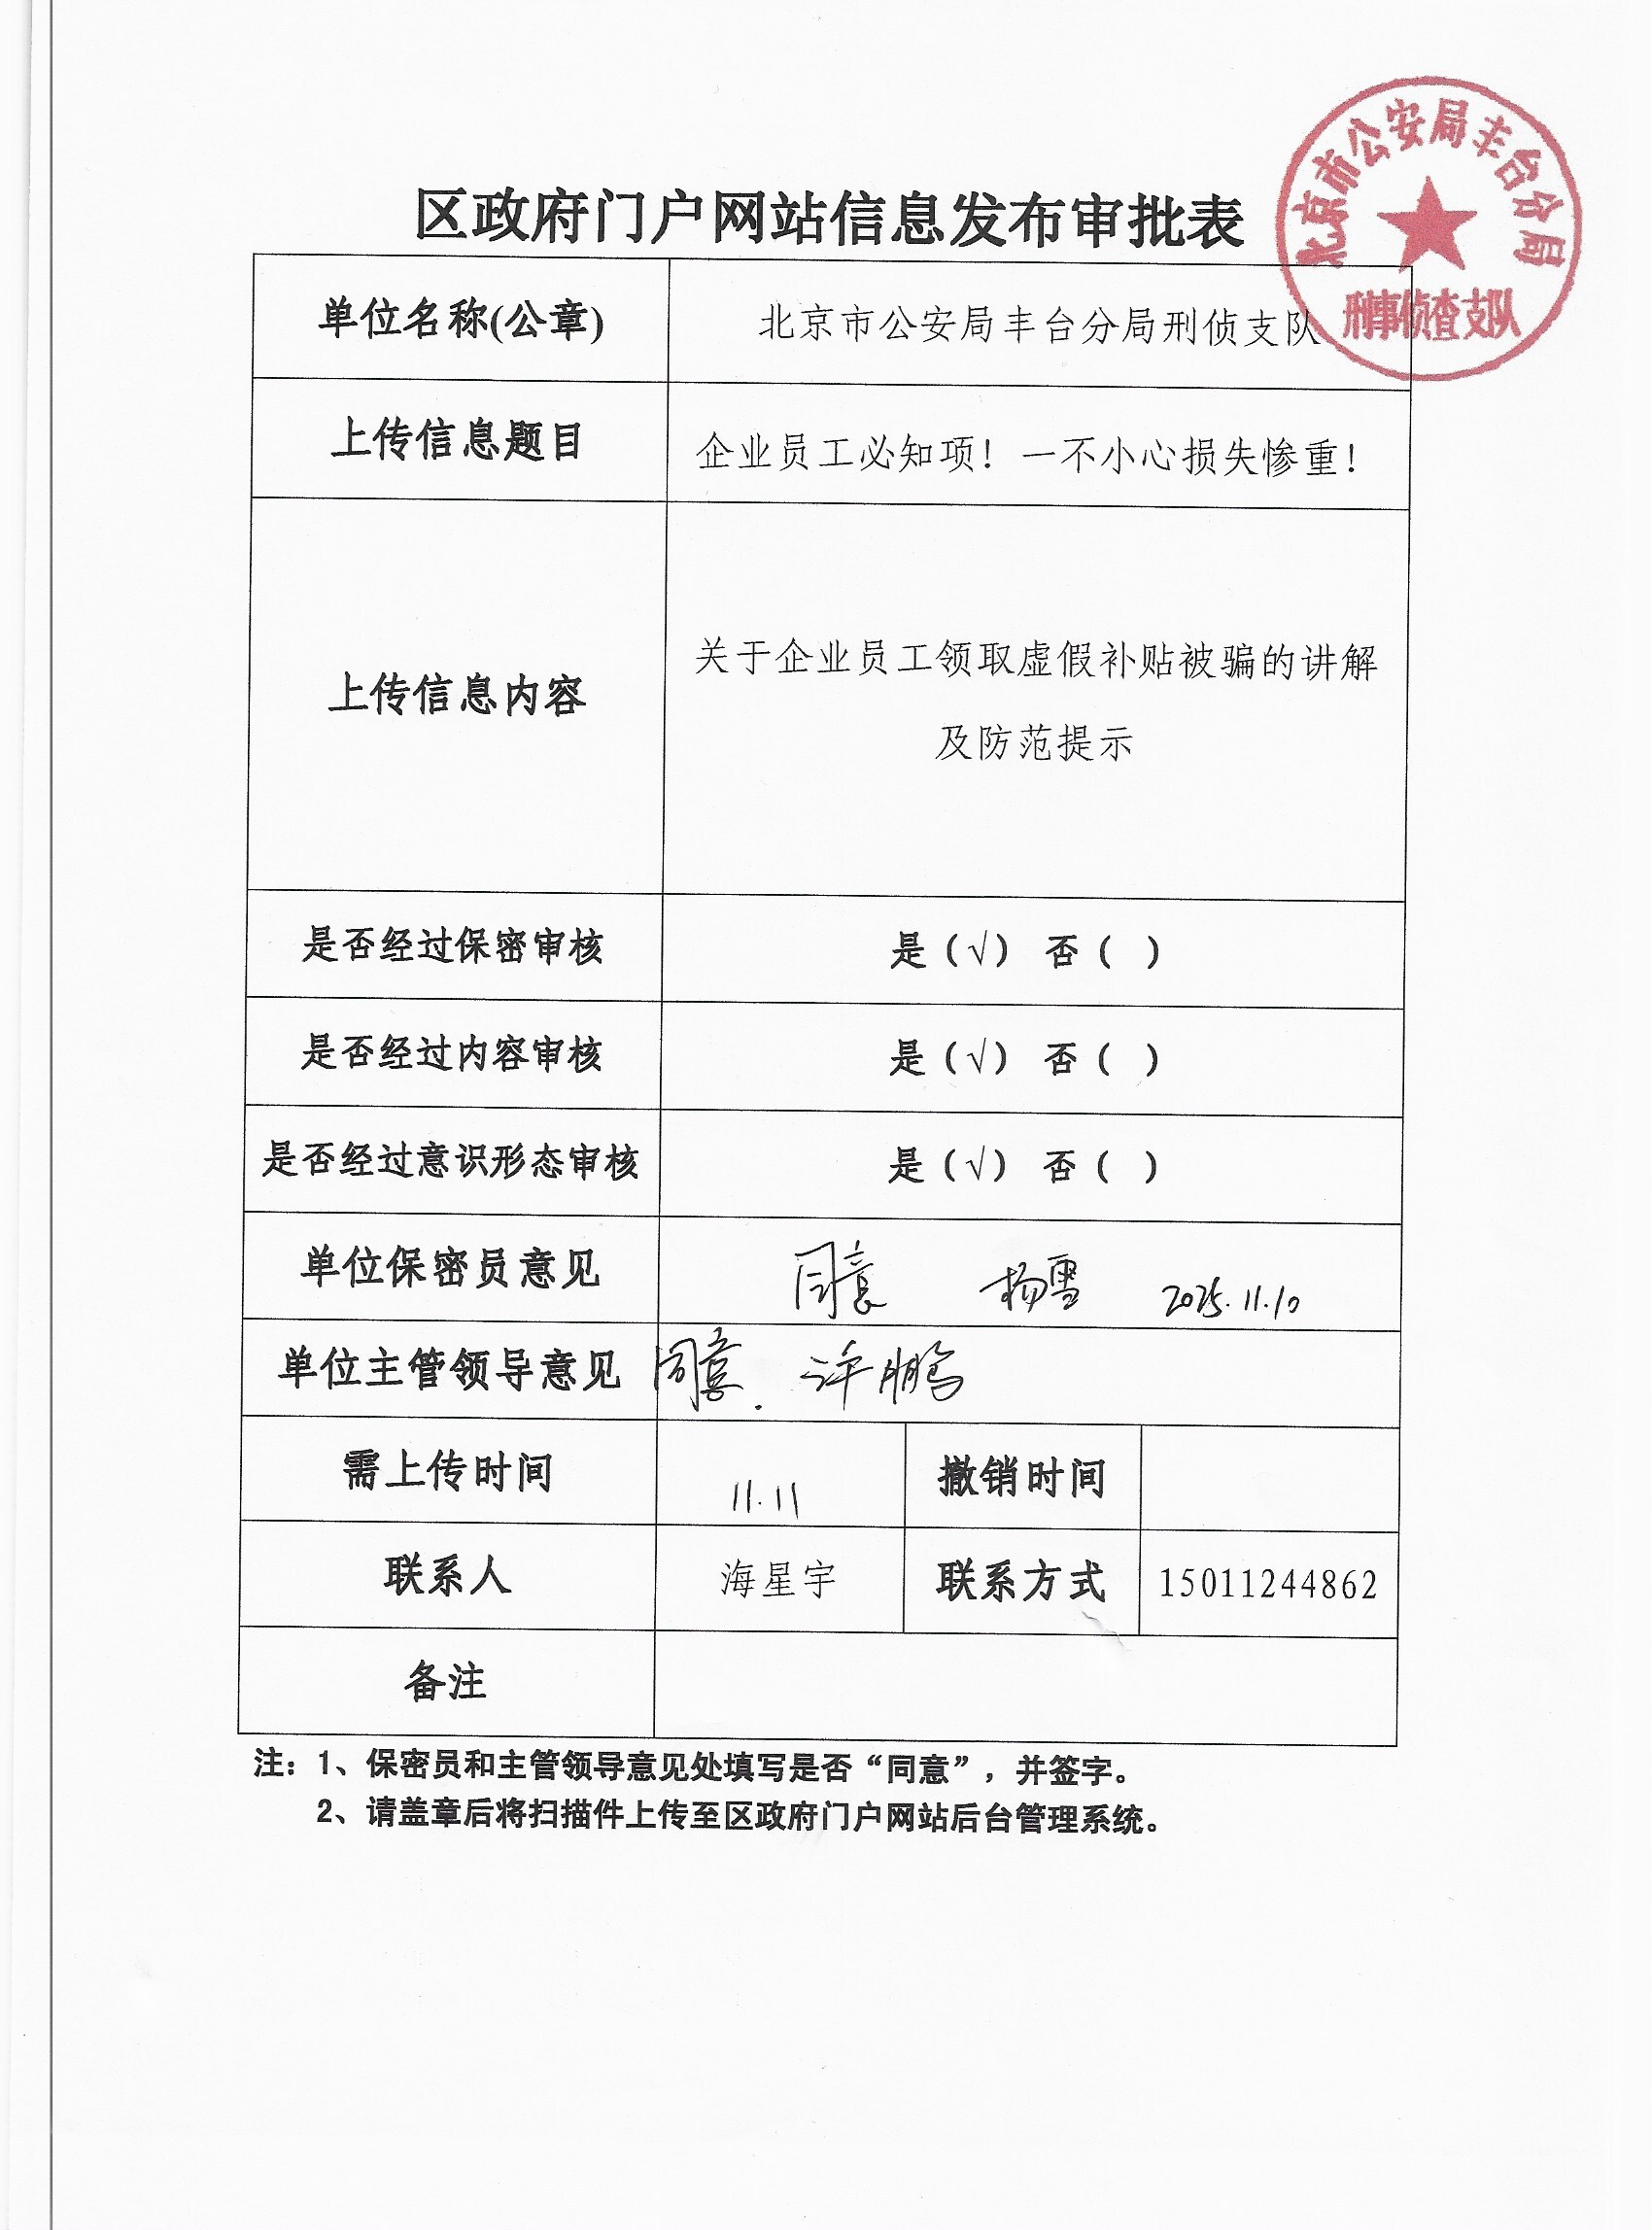 北京市公安局丰台分局
刑事侦查支队
区政府门户网站信息发布审批表
单位名称(公章) 北京市公安局丰台分局刑侦支队
上传信息题目 企业员工必知项！一不小心损失惨重！
上传信息内容 关于企业员工领取虚假补贴被骗的讲解
及防范提示
是否经过保密审核 是（√） 否（ ）
是否经过内容审核 是（√） 否（ ）
是否经过意识形态审核 是（√） 否（ ）
单位保密员意见 同意 杨雪 2025.11.10
单位主管领导意见 同意. 许鹏
需上传时间 11.11 撤销时间
联系人 海星宇 联系方式 15011244862
备注
注：1、保密员和主管领导意见处填写是否“同意”，并签字。
2、请盖章后将扫描件上传至区政府门户网站后台管理系统。